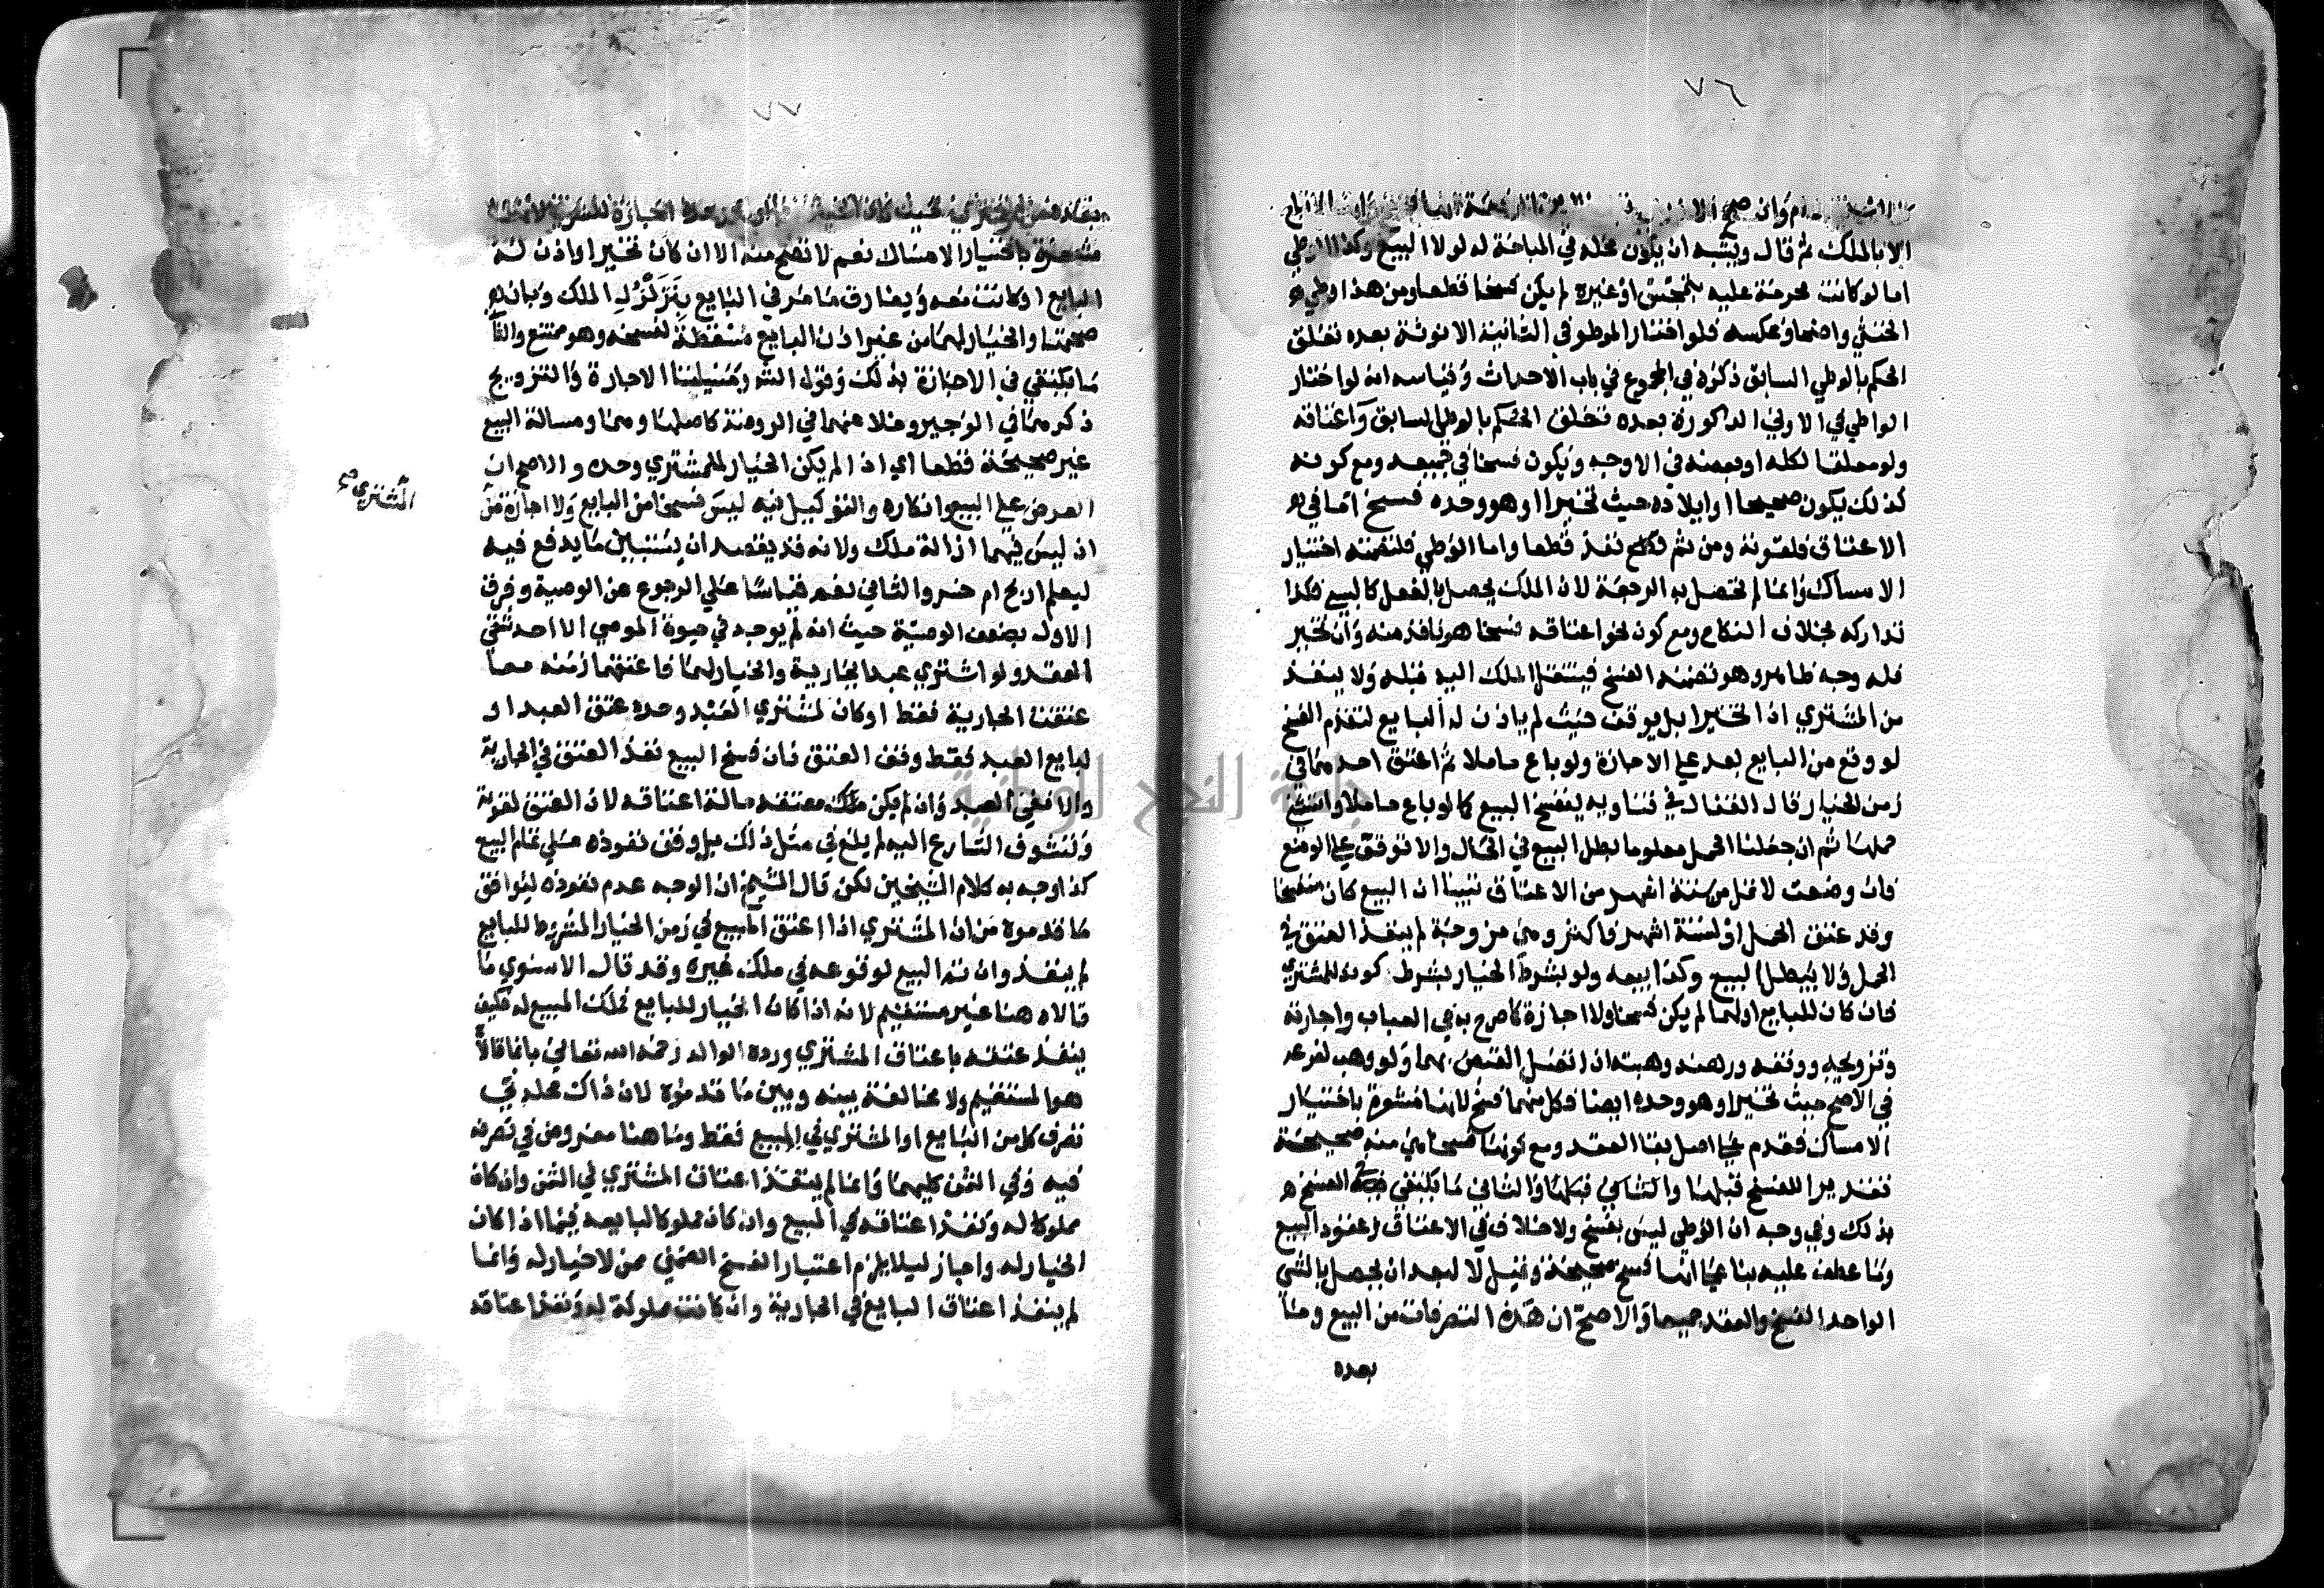 ٧٦
الا بالملك ثم قال ويشبه ان يكون محله في المباحة له لولا البيع وكذا الوطي
اما لو كانت محرمة عليه بتمجس او غيره لم يكن فسخا قطعا ومن هذا وطي
الخنثي واضحا وعكسه فلو اختار الموطو في الثانية الانوثة بعده تعلق
الحكم بالوطي السابق ذكره في المجموع في باب الاحداث وقياسه انه لو اختار
الواطي في الاولي الذكورة بعده تعلق الحكم بالوطي السابق واعتاقه
ولو معلقا لكله او بعضه في الاوجه ويكون فسخا في جميعه ومع كونه
كذلك يكون صحيحا وايلاده حيث تخيرا او هو وحده فسخ اما في
الاعتاق فلقوته ومن ثم نفذ قطعا واما الوطي فلتضمنه اختيار
الامساك وانما لم تحصل به الرجعة لان الملك يحصل بالفعل كالسبي فكذا
تداركه بخلاف النكاح ومع كون نحو اعتاقه فسخا هو نافذ منه وان تخير
فله وجه ظاهر وهو تضمنه الفسخ فينتقل الملك اليه قبله ولا ينفذ
من المشتري اذا تخيرا بل يوقف حيث لم ياذن له البايع لتقدم الفسخ
لو وقع من البايع بعد علي الاجازة ولو باع حاملا ثم اعتق احدهما في
زمن الخيار قال القفال في فتاويه ينفسخ البيع كما لو باع حاملا واستثني
حملها ثم ان جعلنا الحمل معلوما بطل البيع في الحال والا توقف علي الوضع
فان وضعت لاقل من ستة اشهر من الاعتاق تبينا ان البيع كان منفسخا
وقد عتق الحمل او لستة اشهر فاكثر وهي مزوجة لم ينفذ العتق في
الحمل ولا يبطل البيع وكذا بيعه ولو بشرط الخيار بشرط كونه للمشتري
فان كان للبايع او لهما لم يكن فسخا ولا اجازة كما صرح به في العباب واجارته
وتزويجه ووقفه ورهنه وهبته ان اتصل القبض بهما ولو وهب لفرعه
في الاصح حيث تخيرا او هو وحده ايضا فكل منهما فسخ لانها مشعرة باختيار
الامساك فقدم علي اصل بقا العقد ومع كونها فسخا هي منه صحيحة
تقديرا للفسخ قبلها والثاني ما يكتفي في الفسخ
بذلك وفي وجه ان الوطي ليس بفسخ ولا خلاف في الاعتاق وعقود البيع
وما عطف عليه بنا علي انها فسخ صحيحة وقيل لا لبعد ان يحصل بالشي
الواحد الفسخ والعقد جميعا والاصح ان هذه التصرفات من البيع وما
بعده
٧٧
مشعرة باختيار الامساك نعم لا تصح منه الا ان كان تخيرا واذن له
البايع او كانت معه ويفارق ما مر في البايع بتزلزل الملك وبان في
صحتها والخيار لهما من غير اذن البايع مسقطة لفسخه وهو ممتنع والثاني
ما يكتفي في الاجازة بذلك وقول الشر وتمثيلنا الاجارة والتزويج
ذكرهما في الوجيز وخلا عنهما في الروضة كاصلها وهما ومسالة البيع
غير صحيحة قطعا اي اذا لم يكن الخيار للمشتري وحده والاصح ان
العرض علي البيع وانكاره والتوكيل فيه ليس فسخا من البايع ولا اجازة من
المشتري صح
اذ ليس فيهما ازالة ملك ولانه قد يقصد ان يستبين ما يدفع فيه
ليعلم اربح ام خسر والثاني نعم قياسا علي الرجوع عن الوصية وفرق
الاول بضعف الوصية حيث انه لم يوجد في حيوة الموصي الا احد شقي
العقد ولو اشتري عبدا بجارية والخيار لهما فاعتقهما زمنه معا
عتقت الجارية فقط او كان لمشتري العبد وحده عتق العبد او
لبايع العبد فقط وقف العتق فان فسخ البيع نفذ العتق في الجارية
والا ففي العبد وان لم يكن ملك معتقه حالة اعتاقه لان العتق لقوته
وتشوف الشارع اليه لم يلغ في مثل ذلك بل وقف نفوذه علي تمام البيع
كذا وجه به كلام الشيخين لكن قال الشيخ ان الوجه عدم نفوذه ليوافق
ما قدموه من ان المشتري اذا اعتق المبيع في زمن الخيار المشروط للبايع
لم ينفذ وان تم البيع لوقوعه في ملك غيره وقد قال الاسنوي ما
قالاه هنا غير مستقيم لانه اذا كان الخيار للبايع فملك المبيع له فكيف
ينفذ عتقه باعتاق المشتري ورده الوالد رحمه الله تعالي بان ما قالاه
هو المستقيم ولا مخالفة بينه وبين ما قدموه لان ذاك محله في
تصرف كل من البايع او المشتري في المبيع فقط وما هنا مفروض في تصرفه
فيه وفي الثمن كليهما وانما لم ينفذ اعتاق المشتري في الثمن وان كان
مملوكا له ونفذ اعتاقه في المبيع وان كان مملوكا لبايعه فيما اذا كان
الخيار له واجاز ليلا يلزم اعتبار الفسخ الضمني ممن لا خيار له وانما
لم ينفذ اعتاق البايع في الجارية وان كانت مملوكة له ونفذ اعتاقه